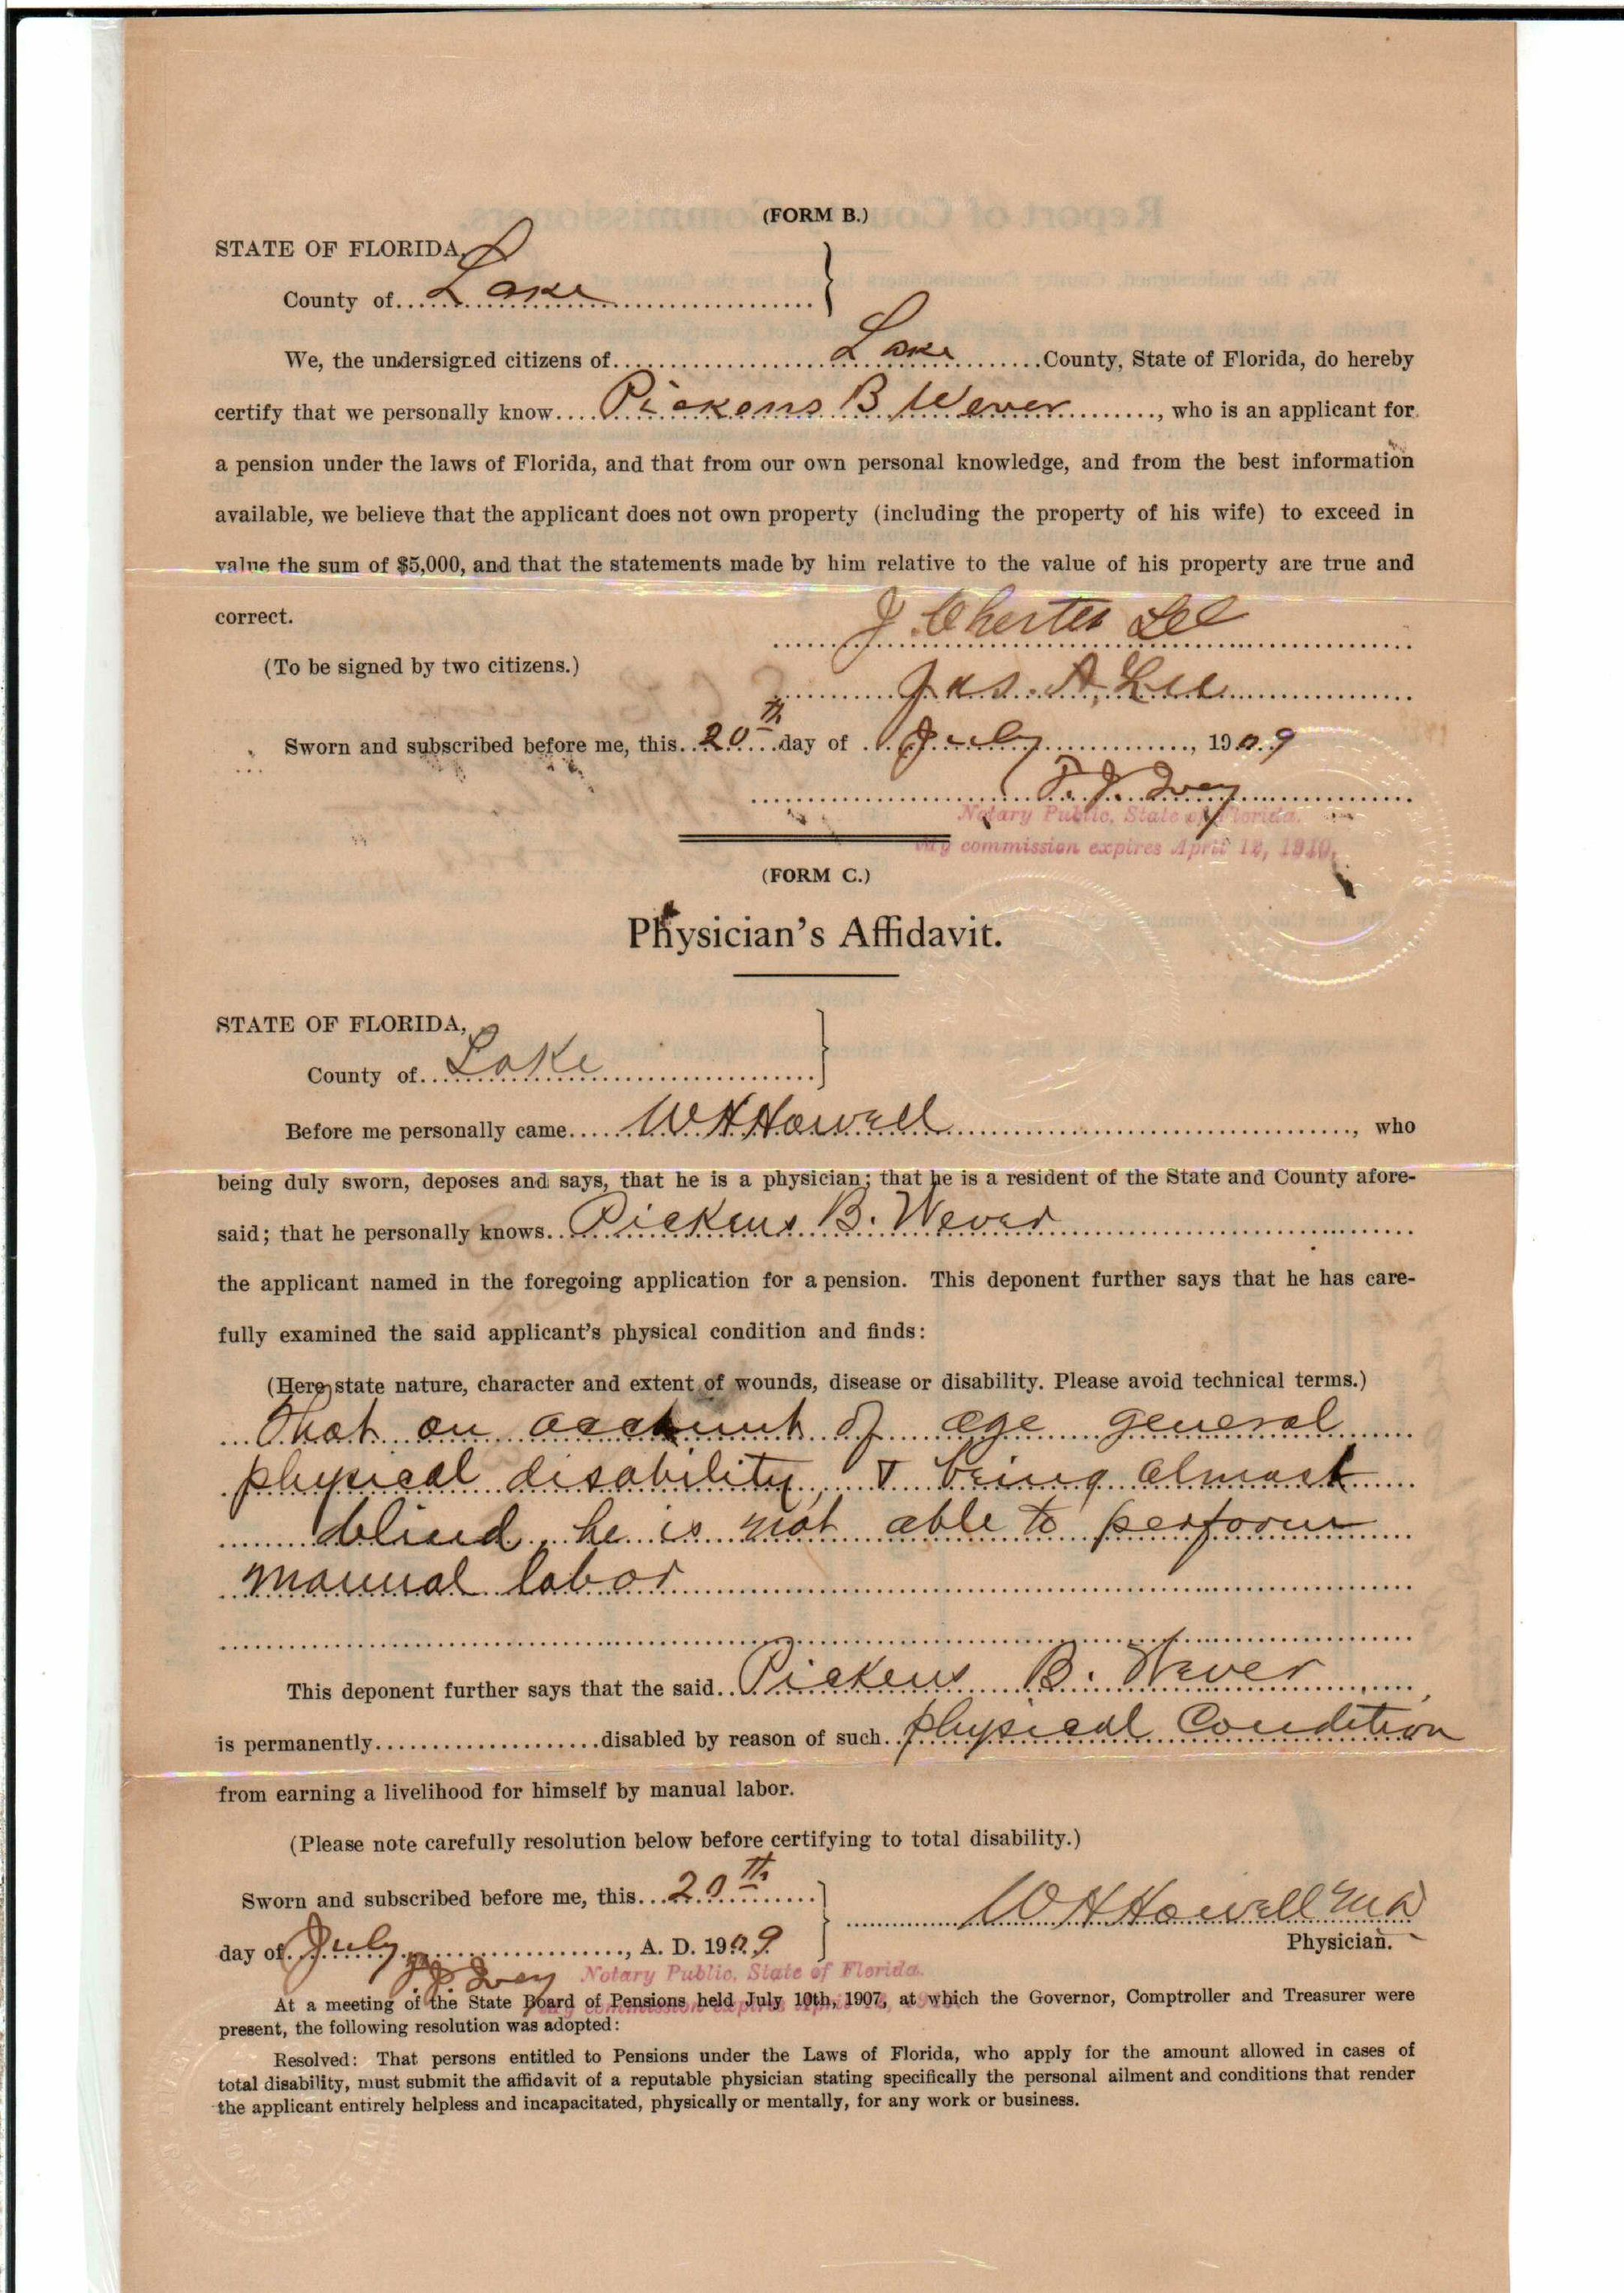 (FORM B.)
STATE OF FLORIDA,
County of Lake
We, the undersigned citizens of Lake County, State of Florida, do hereby
certify that we personally know Pickens B Wever, who is an applicant for
a pension under the laws of Florida, and that from our own personal knowledge, and from the best information
available, we believe that the applicant does not own property (including the property of his wife) to exceed in
value the sum of $5,000, and that the statements made by him relative to the value of his property are true and
correct.
J. Chester Lee
(To be signed by two citizens.)
Jas. A. Lee
Sworn and subscribed before me, this 20th day of July, 1909
Ivey
Notary Public, State of Florida.
My commission expires April 12, 1910.
(FORM C.)
Physician's Affidavit.
STATE OF FLORIDA,
County of Lake
Before me personally came W H Howell, who
being duly sworn, deposes and says, that he is a physician; that he is a resident of the State and County afore-
said; that he personally knows Pickens B. Wever
the applicant named in the foregoing application for a pension. This deponent further says that he has care-
fully examined the said applicant's physical condition and finds:
(Here state nature, character and extent of wounds, disease or disability. Please avoid technical terms.)
That on account of age general
physical disability, & being almost
blind, he is not able to perform
manual labor
This deponent further says that the said Pickens B. Wever
is permanently disabled by reason of such physical Condition
from earning a livelihood for himself by manual labor.
(Please note carefully resolution below before certifying to total disability.)
Sworn and subscribed before me, this 20th
W H Howell MD
day of July, A. D. 1909
Physician.
Ivey Notary Public, State of Florida.
My commission expires April
At a meeting of the State Board of Pensions held July 10th, 1907, at which the Governor, Comptroller and Treasurer were
present, the following resolution was adopted:
Resolved: That persons entitled to Pensions under the Laws of Florida, who apply for the amount allowed in cases of
total disability, must submit the affidavit of a reputable physician stating specifically the personal ailment and conditions that render
the applicant entirely helpless and incapacitated, physically or mentally, for any work or business.